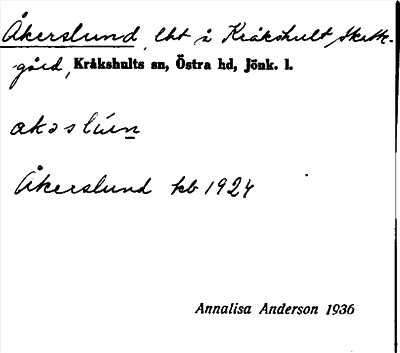 Åkerslund, lht å Kråkshult Skatte-
gård, Kråkshults sn, Östra hd, Jönk. l.
åkəslún
Åkerslund kb 1924
Annalisa Anderson 1936